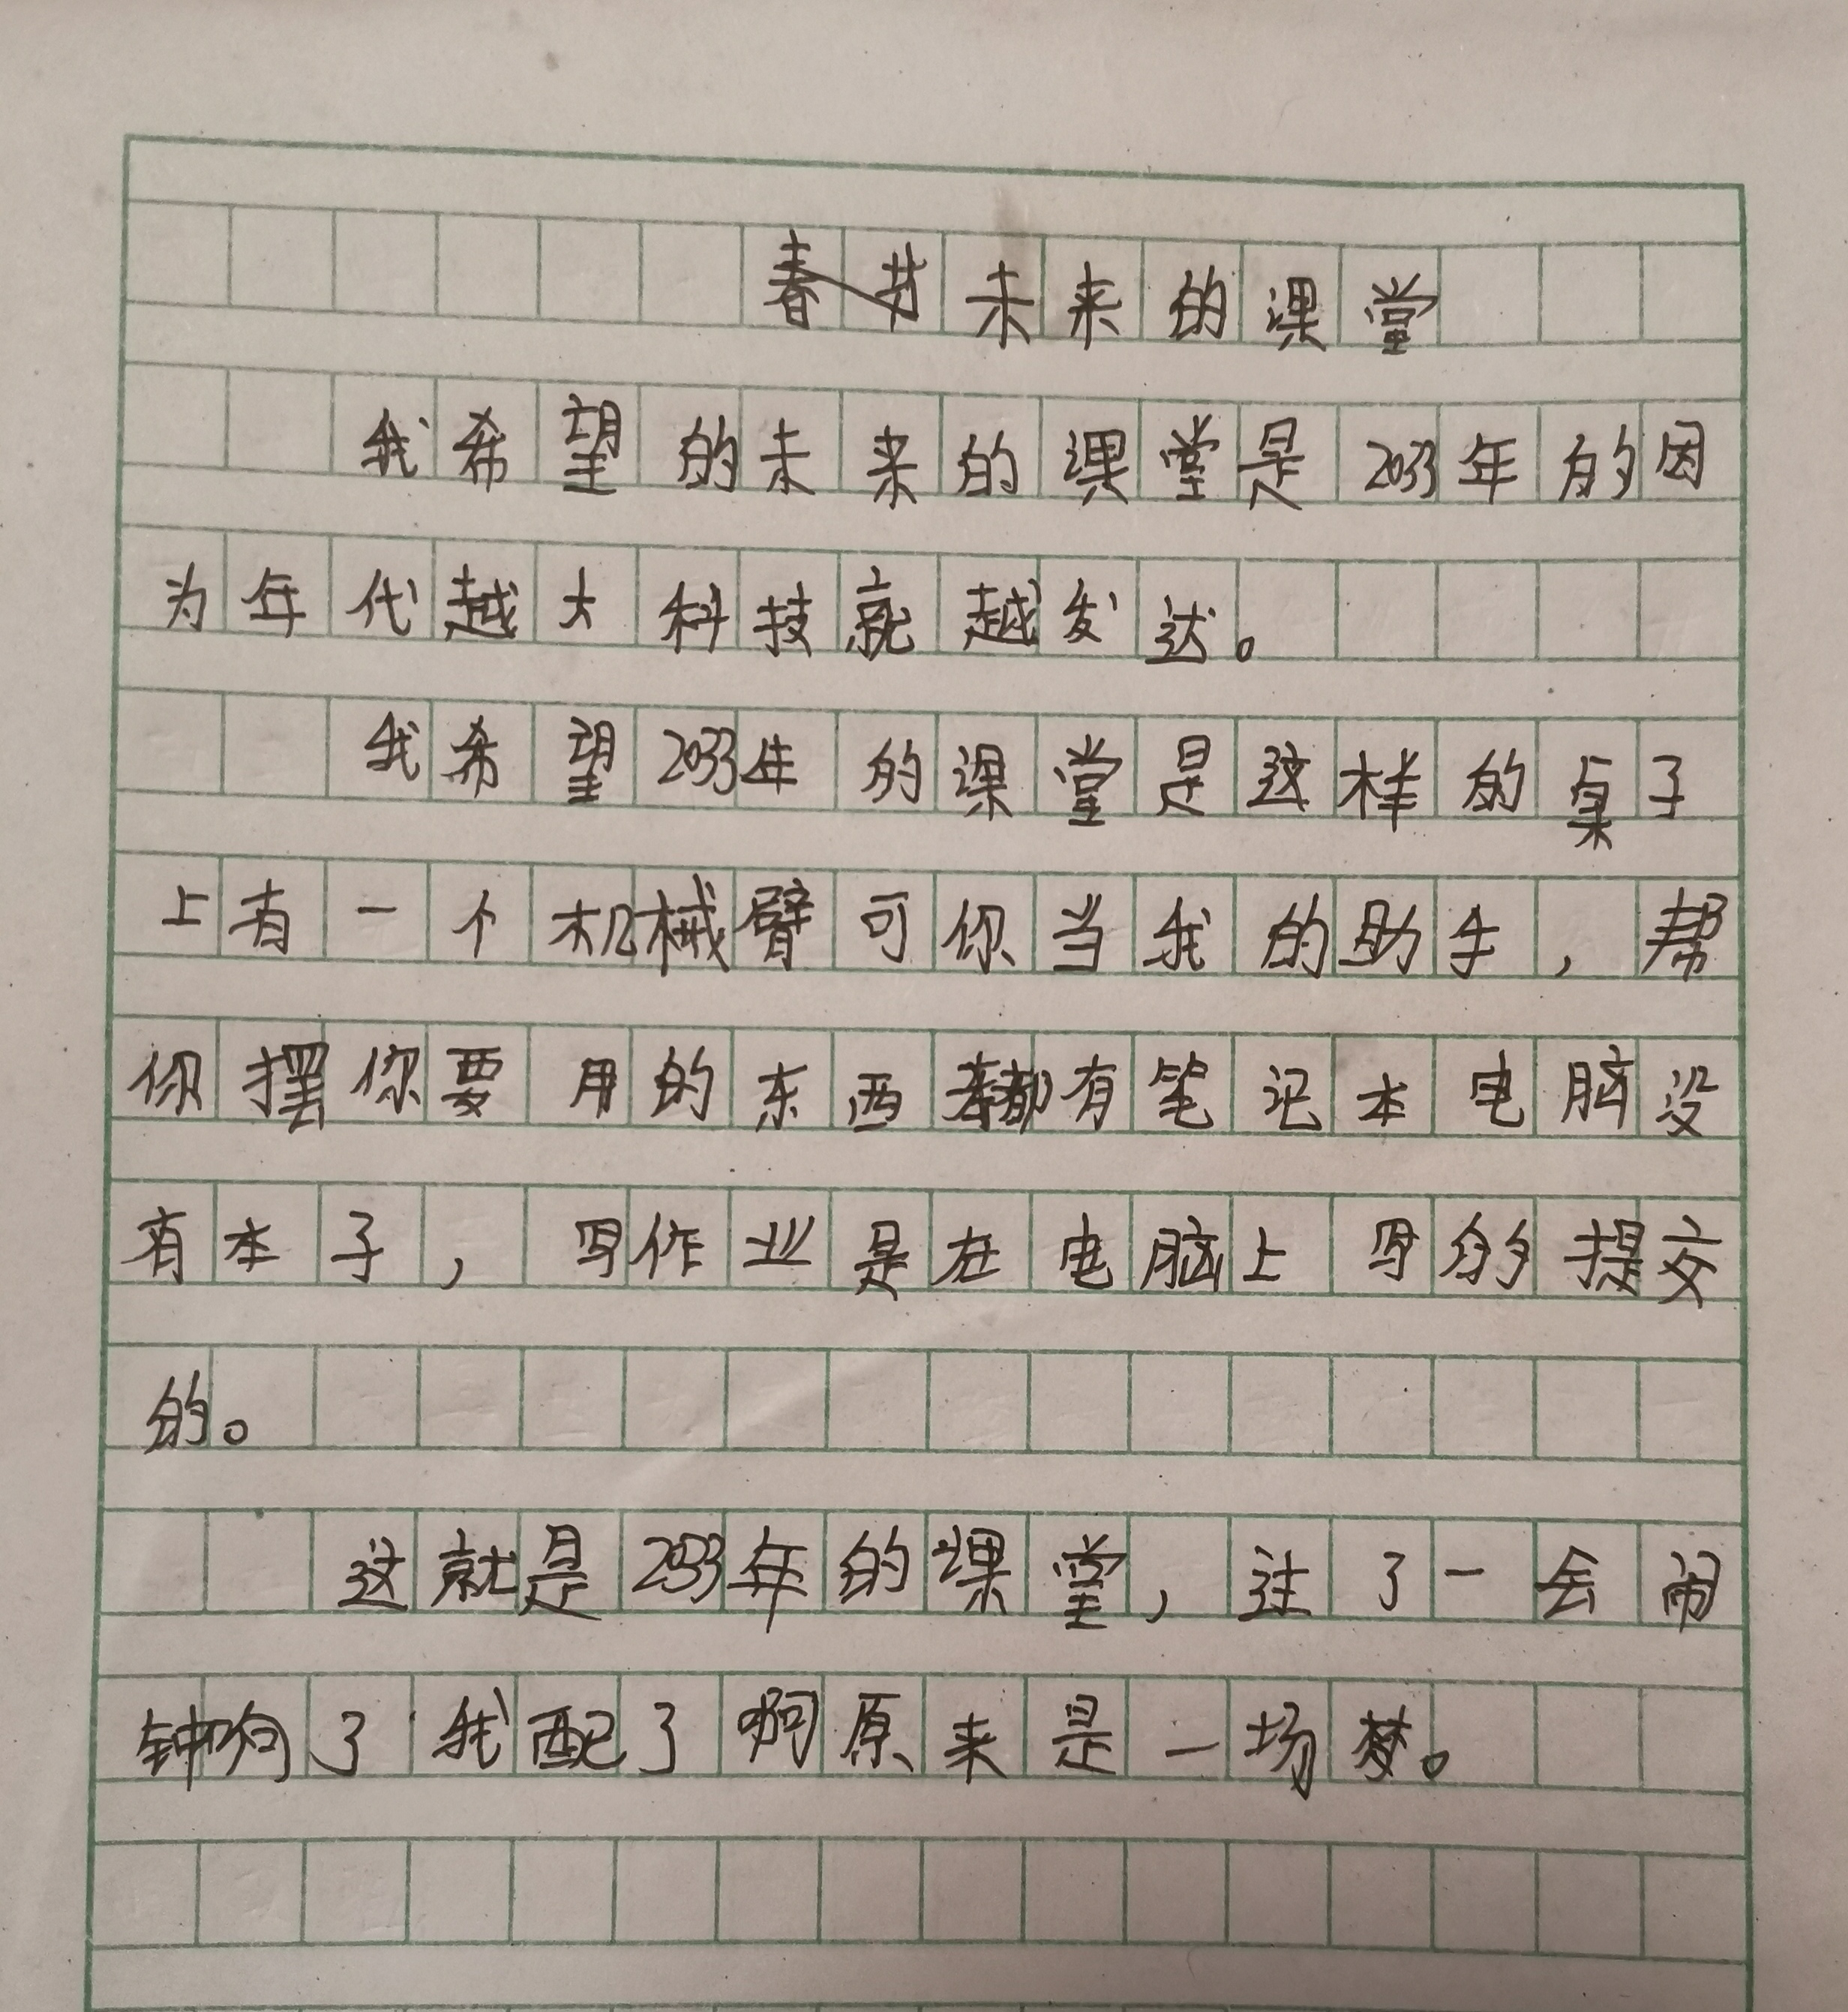 未来的课堂
我希望的未来的课堂是2033年的因
为年代越大科技就越发达。
我希望2033年的课堂是这样的桌子
上有一个机械臂可你当我的助手，帮
你摆你要用的东西都有笔记本电脑没
有本子，写作业是在电脑上写的提交
的。
这就是2033年的课堂，过了一会闹
钟响了我醒了啊原来是一场梦。